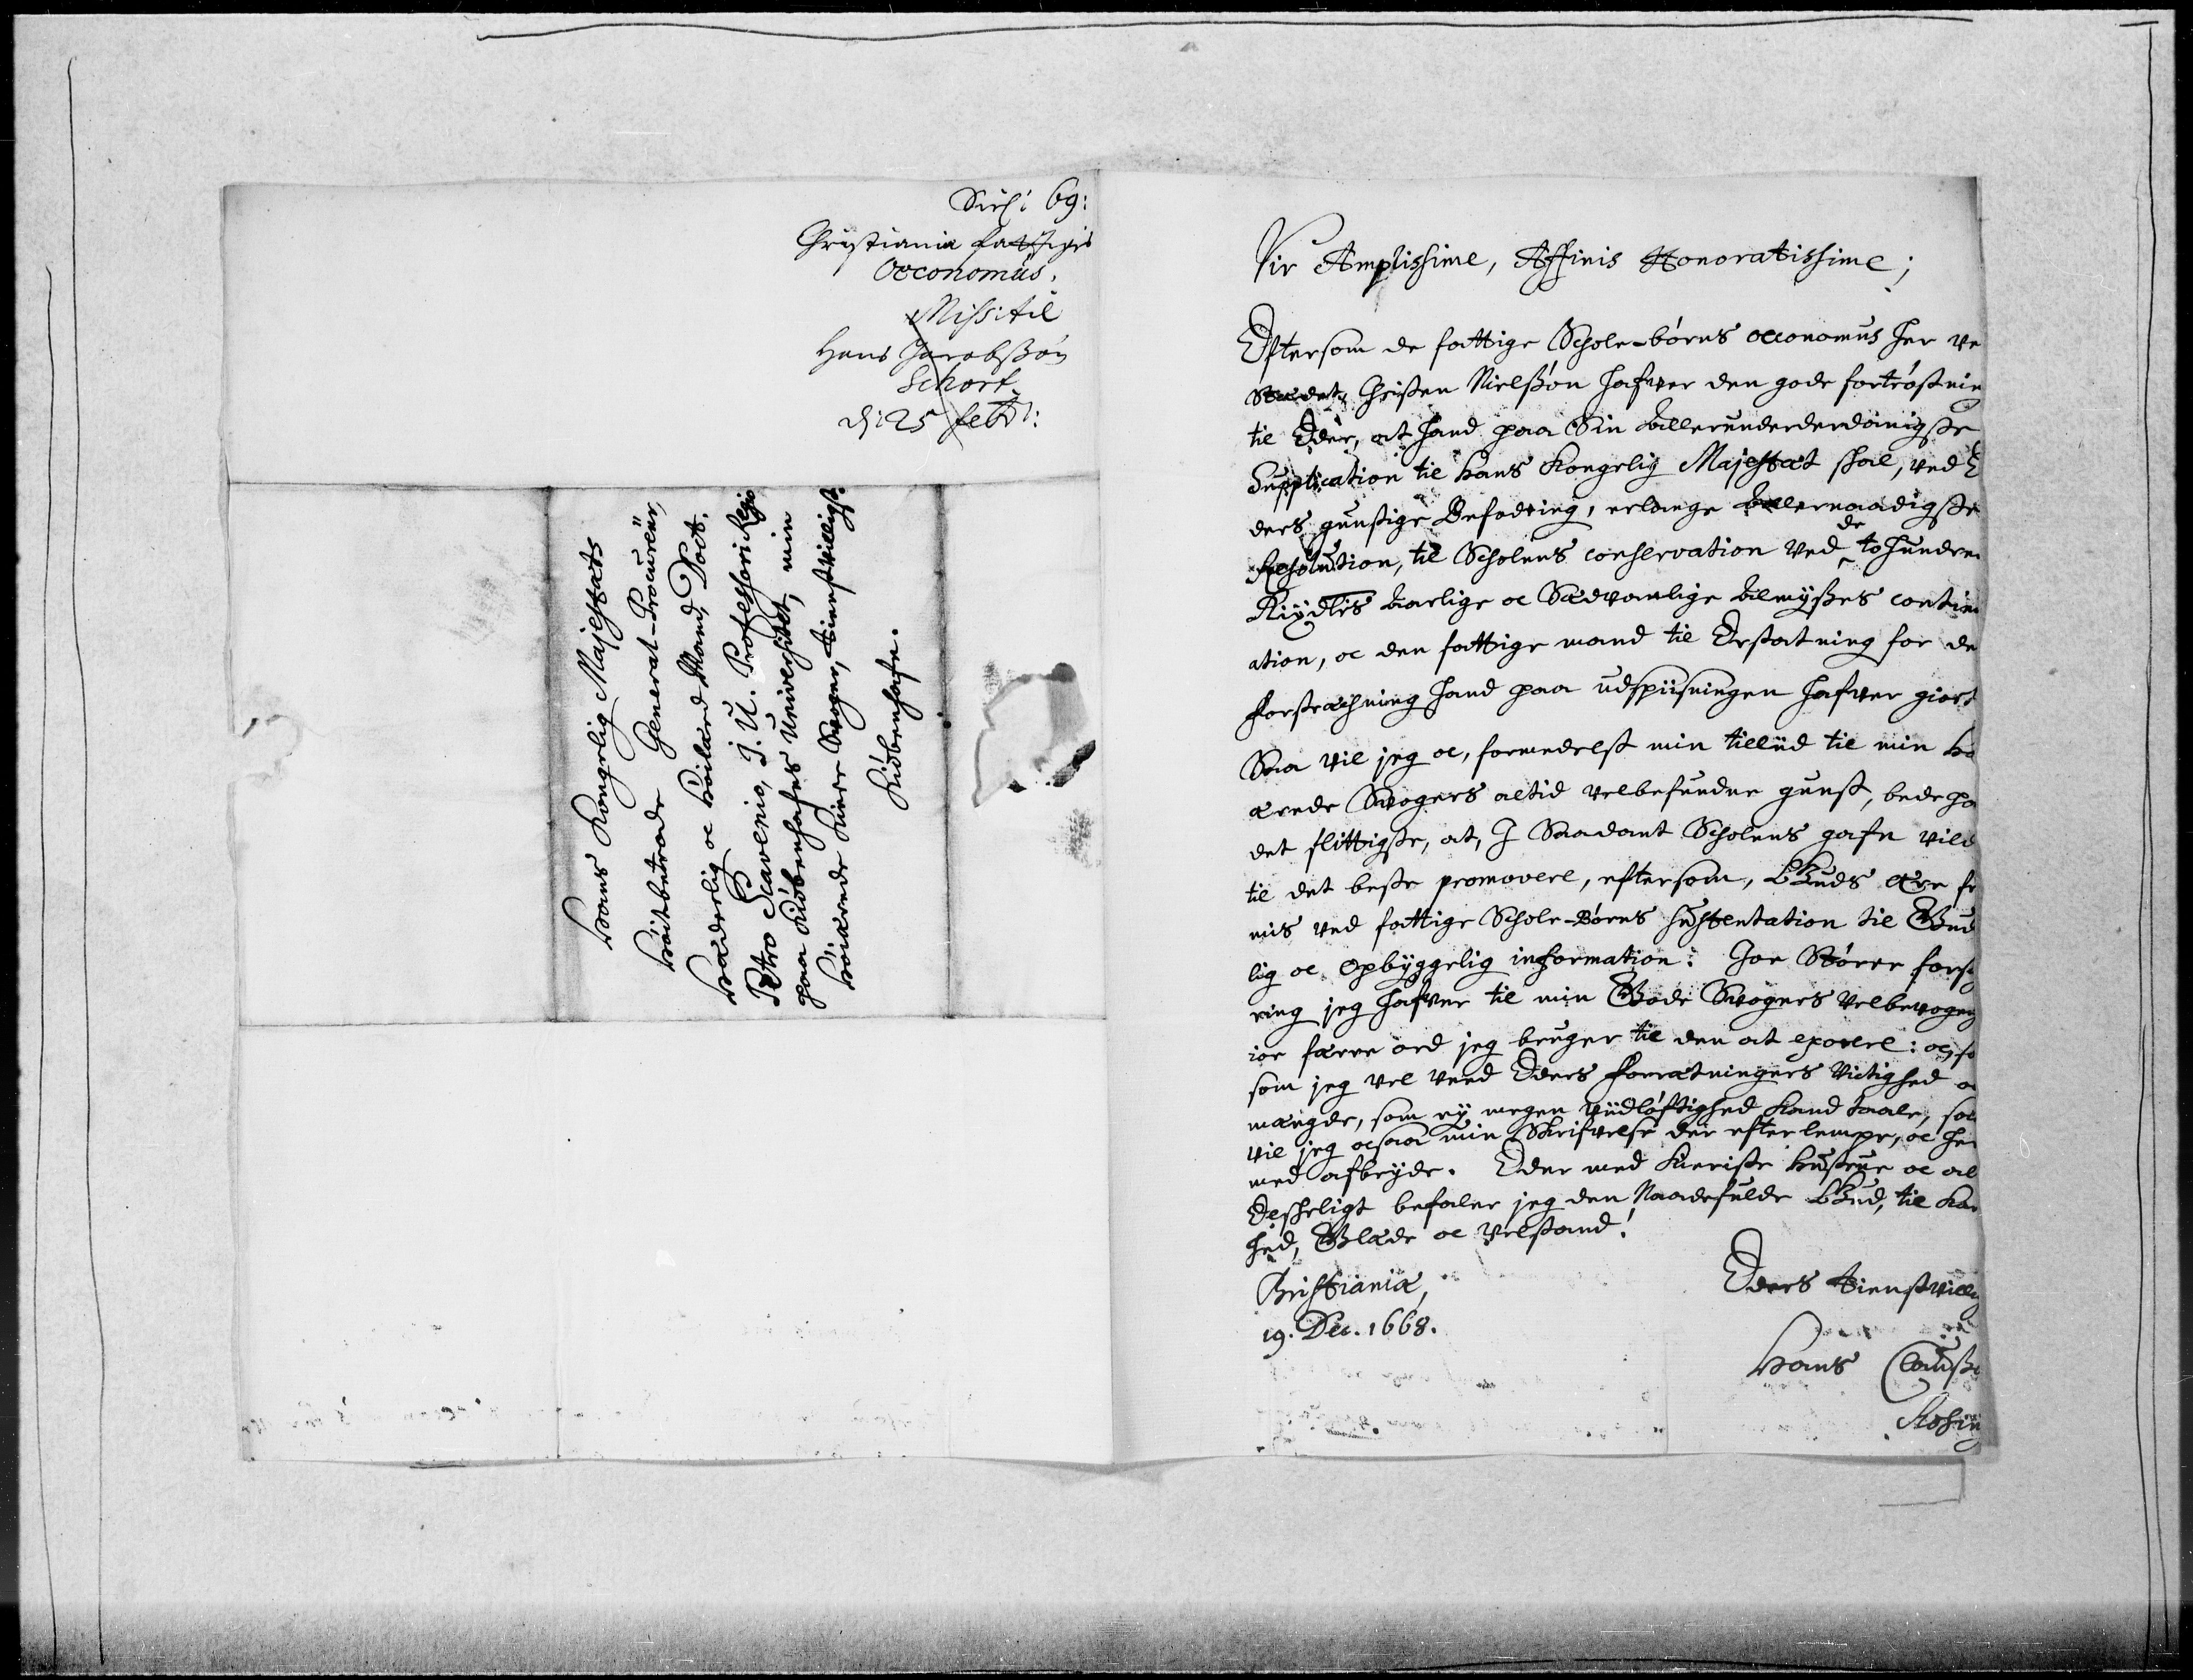 69:
Christiania fattigis
Oeconomus.
Miss: til
Hans Jacobssøn
Schort
d: 25 febr:
Hans Kongelig Majestats
Høitbetrode General-Procureür,
Hæderlig oc Høilærd Mand, Doct.
Petro Scavenio, J. U. Professori Regio
paa Kiøbenhafns Universitet, min
Høiærede kiere Swoger, tienstvilligst.
Kiøbenhafn.
Vir Amplissime, Affinis Honoratissime;
Eftersom de fattige Schole-børns oeconomus her ve
Stædet, Christen Nielssøn hafver den gode fortrøstnin
til Eder, at hand paa Sin Allerunderdanigste
Supplication til Hans Kongelig Majestæt skal, ved E
ders gunstige Befodring, erlange Allernaadigste
Resolution, til Scholens conservation ved de tohundre
Rixdlrs Aarlige oc Sædvanlige Almysses contin
ation, oc den fattige mand til Erstatning for de
forstrachning hand paa udspiisningen hafver giort
Saa vil jeg oc, formedelst min tilliid til min Hø
ærede Swogers altid velbefundne gunst, bede pa
det flittigste, at, I Saadant Scholens gafn vild
til det beste promovere, eftersom, Guds ære fr
mis ved fattige Schole-Børns sustentation til Gud
lig oc Opbyggelig information: Joe Større forsi
ring jeg hafver til min Gode Swogers Velbevogen
joe færre ord jeg bruger til den at exorere: oc, so
som jeg vel veed Eders forretningers Victighed o
mængde, som ey megen vidløftighed kand taale, saa
vil jeg ocsaa min Skrifvelse der efter lempe, oc her
med afbryde. Eder med kieriste Hustrue oc al
Deslkeligt befaler jeg den Naadefulde Gud, til
hed, Glæde oc Velstand!
Christianiæ,
19. Dec. 1668.
Eders tienstvillig
Hans Clauss
Rosing